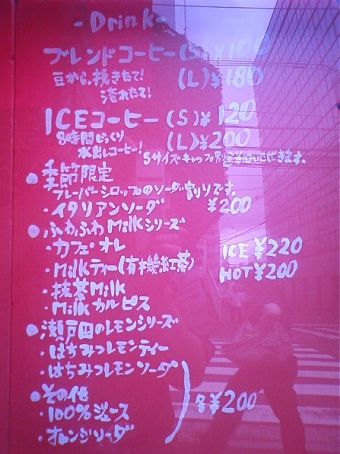 - Drink -
ブレンドコーヒー(S)¥100
豆から、挽きたて! (L)¥180
淹れたて!
ICEコーヒー(S)¥120
8時間じっくり (L)¥200
水出しコーヒー! Sサイズ
●季節限定
フレーバーシロップのソーダ割りです。
・イタリアンソーダ ¥200
●ふわふわMilkシリーズ
・カフェ・オレ ICE¥220
・Milkティー(有機紅茶) HOT¥200
・抹茶Milk
・Milkカルピス
●瀬戸田のレモンシリーズ
・はちみつレモンティー
・はちみつレモンソーダ
●その他 各¥200
・100%ジュース
・オレンジソーダ